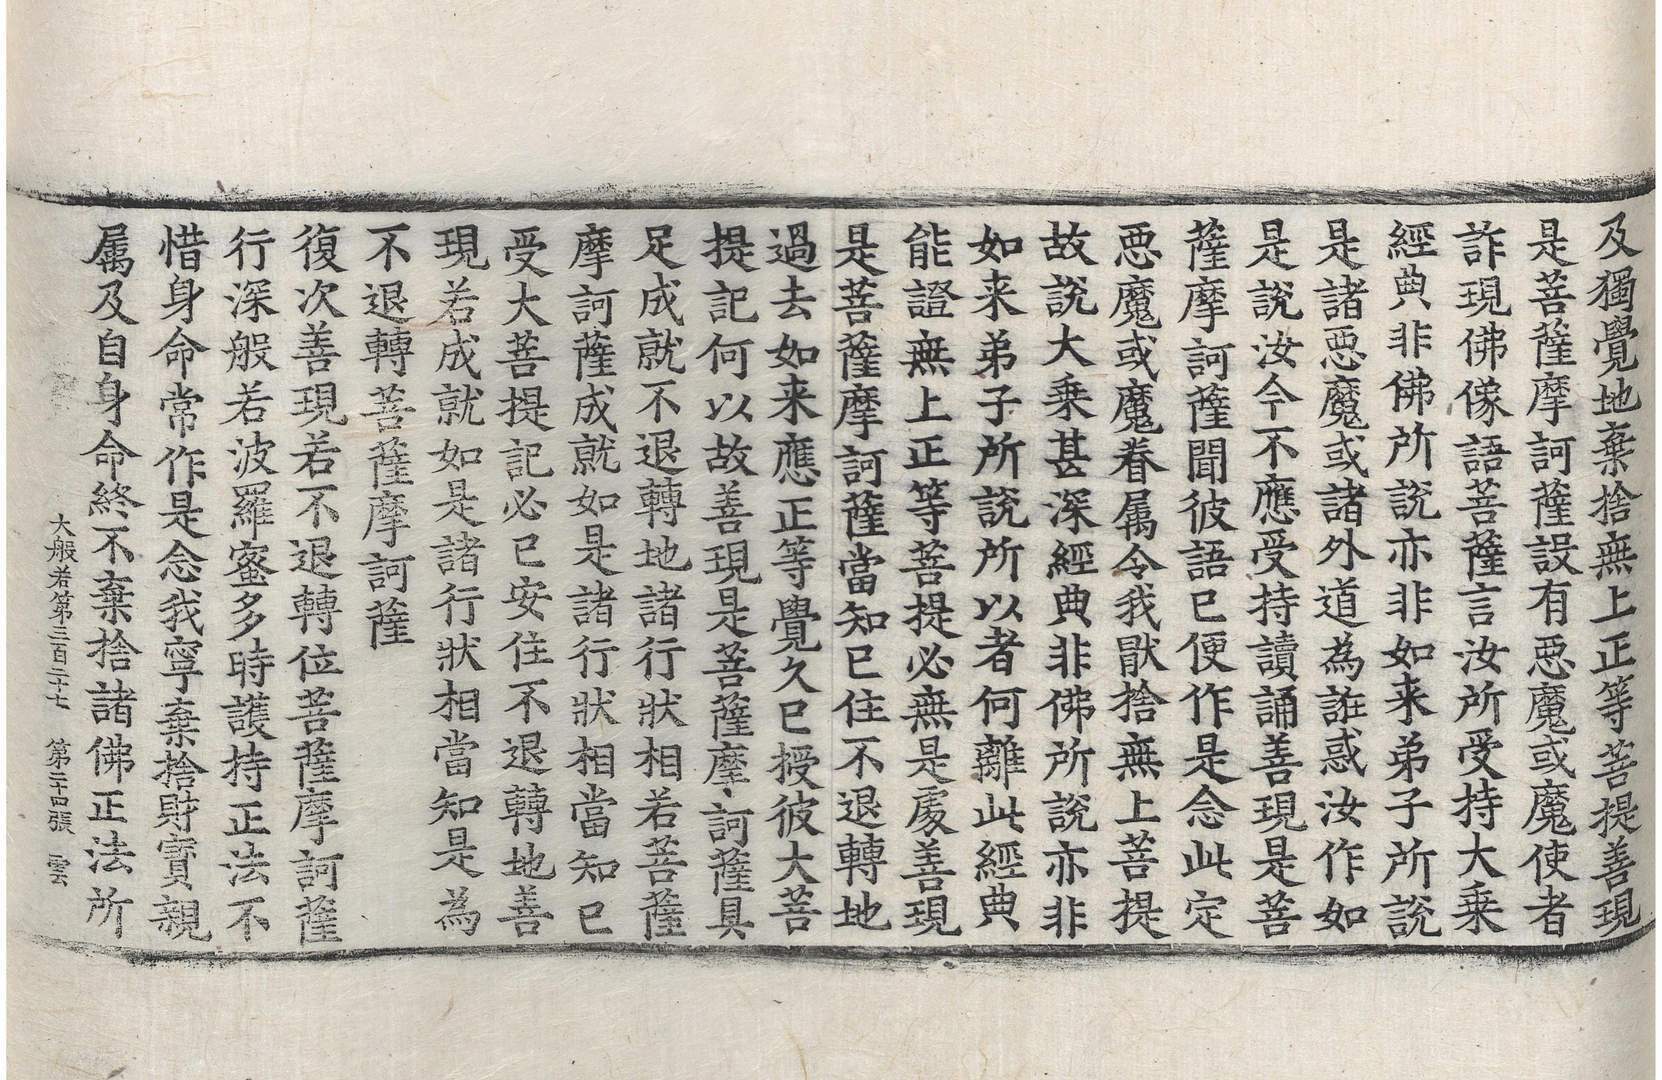 及獨覺地棄捨無上正等菩提善現
是菩薩摩訶薩設有惡魔或魔使者
詐現佛像語菩薩言汝所受持大乗
經典非佛所說亦非如来弟子所說
是諸惡魔或諸外道為誑惑汝作如
是說汝今不應受持讀誦善現是菩
薩摩訶薩聞彼語已便作是念此定
惡魔或魔眷属令我猒捨無上菩提
故說大乗甚深經典非佛所說亦非
如来弟子所說所以者何離此經典
能證無上正等菩提必無是處善現
是菩薩摩訶薩當知已住不退轉地
過去如来應正等覺久已授彼大菩
提記何以故善現是菩薩摩訶薩具
足成就不退轉地諸行狀相若菩薩
摩訶薩成就如是諸行狀相當知已
受大菩提記必已安住不退轉地善
現若成就如是諸行狀相當知是為
不退轉菩薩摩訶薩
復次善現若不退轉位菩薩摩訶薩
行深般若波羅蜜多時護持正法不
惜身命常作是念我寧棄捨財寶親
属及自身命終不棄捨諸佛正法所
大般若第三百二十七 第二十四張 雲